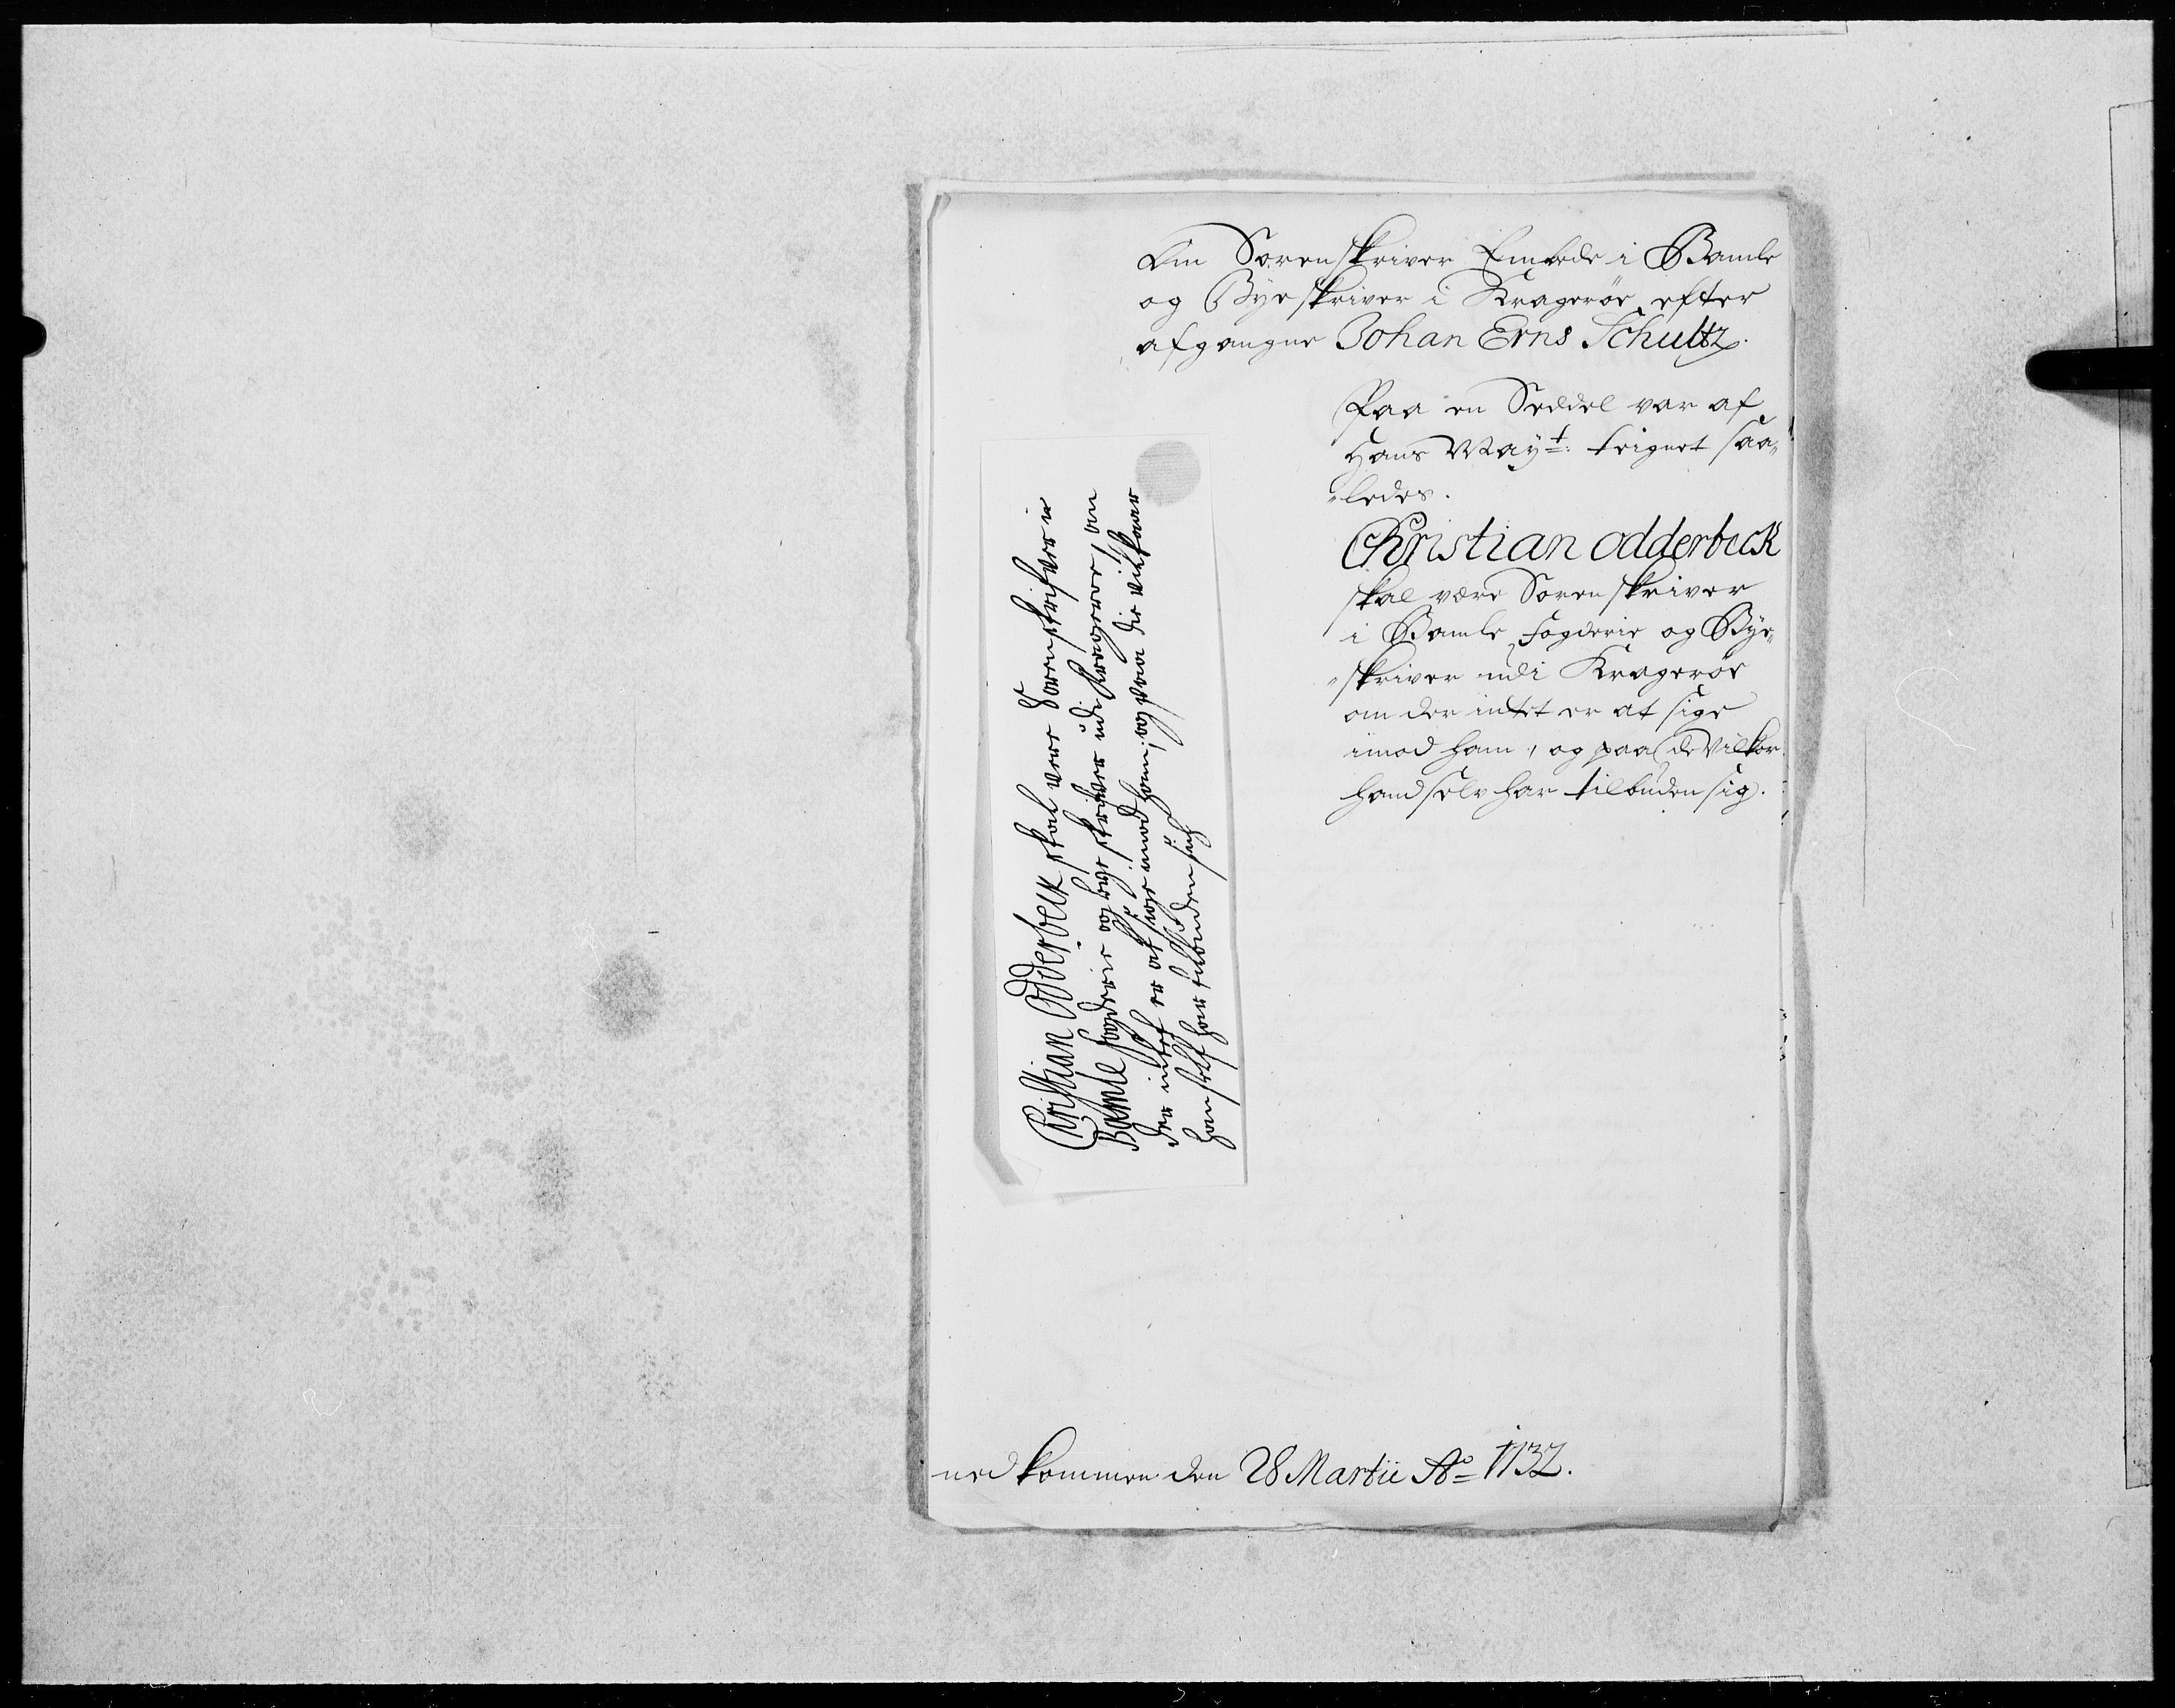 Om Sorenskriver Embede i Bamle
og Byeskriver i Kragerøe efter
afgangne Johan Erns Schultz.
Paa en Seddel var af
Hans Mayt: teignet saa„
„ledes.
Christian Odderbeck
skal være Sorenskriver
i Bamle Fogderie og Bye„
„skriver udi Kragerøe
om der intet er at sige
imod ham, og paa de Vilkor
hand selv har tilbuden sig.
Christian Odderbeck skal vere Sorenskrifver i
Bamle fogderie og bye skriver udi Krageroe, om
der intet er at sige imod ham, og paa die vilkaar
han self har tilbuden sich
nedkommen den 28 Martii Ao 1732.